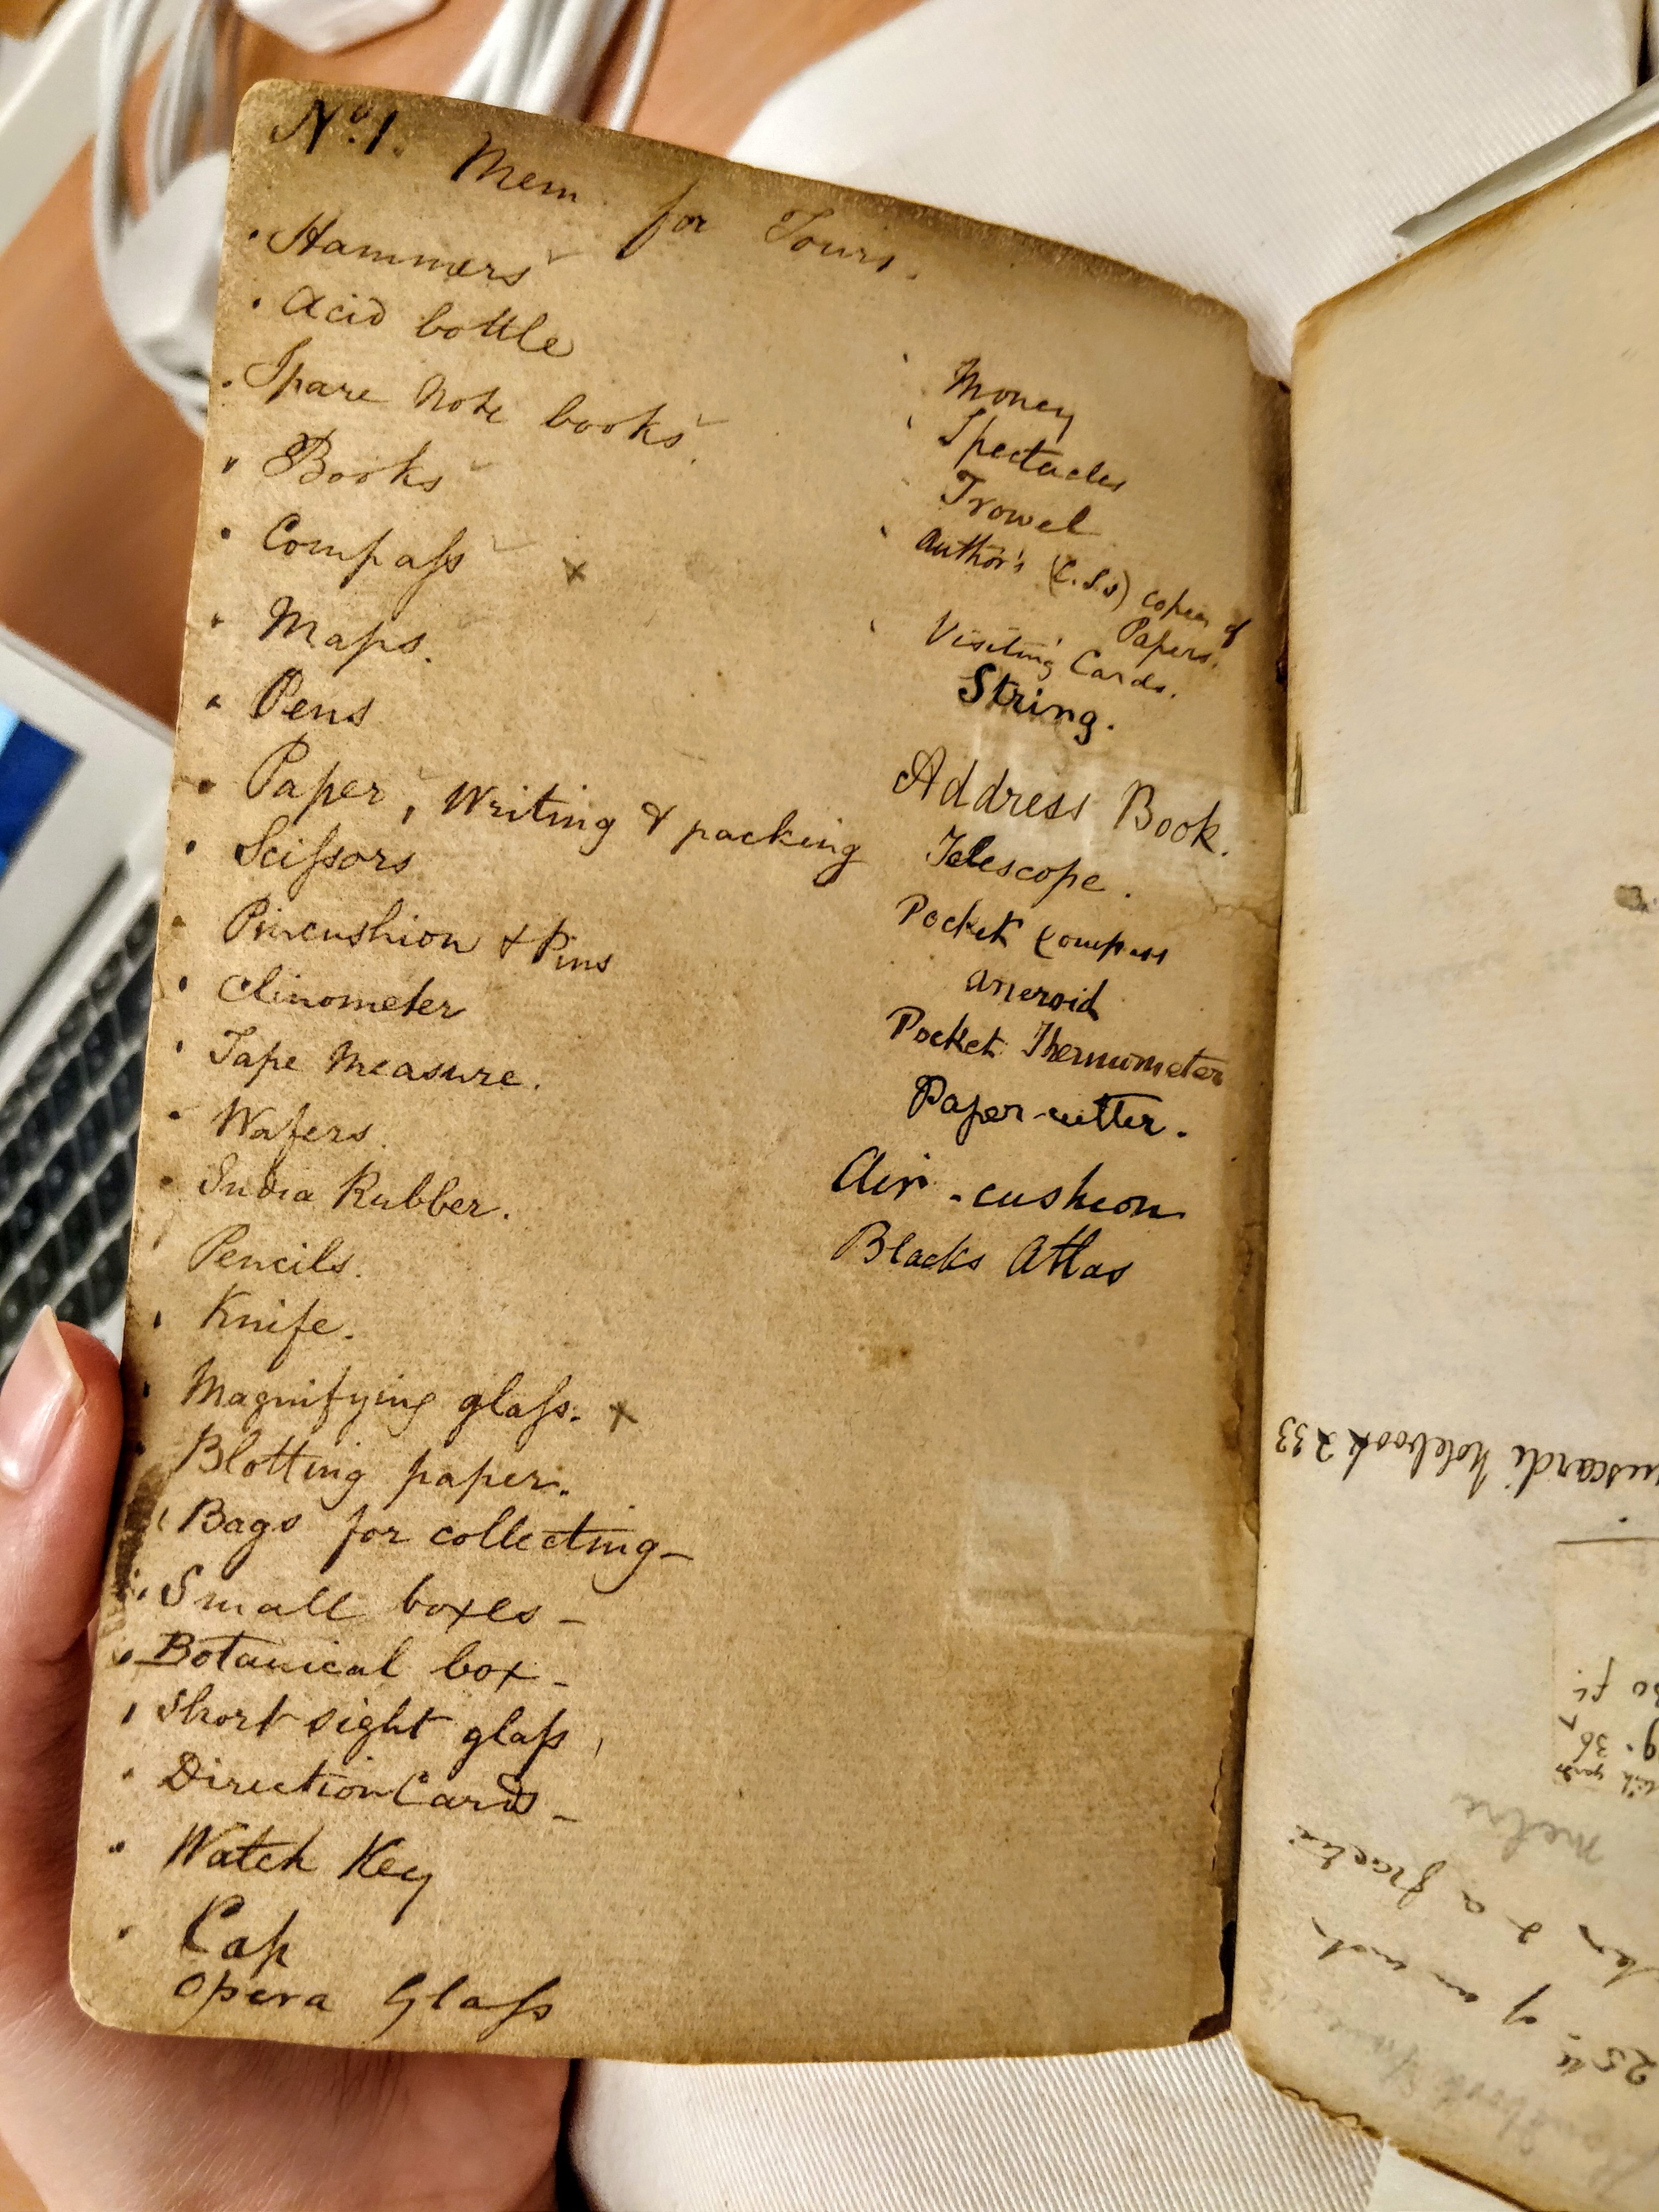 No. 1.
Mem. for Tours.
Hammers
Acid bottle
Spare Note books
Books
Compass x
Maps.
Pens
Paper, Writing & packing
Scissors
Pincushion & Pins
Clinometer
Tape Measure.
Wafers.
India Rubber.
Pencils.
Knife.
Magnifying glass. x
Blotting paper.
Bags for collecting_
Small boxes_
Botanical box_
Short sight glass,
Direction Cards_
Watch Key
Cap
Opera Glass
Money
Spectacles
Trowel
Author's copies of
Papers.
Visiting Cards.
String.
Address Book.
Telescope.
Pocket Compass
Aneroid
Pocket Thermometer
Paper-cutter.
Air-cushion
Blacks Atlas
Notebook 233
metre
& a